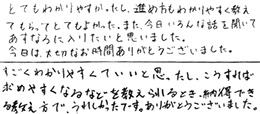 とてもわかりやすかったし、進め方もわかりやすく教え
てもらってとてもよかった。また、今日いろんな話を聞いて
あすなろに入りたいと思いました。
今日は、大切なお時間ありがとうございました。
すごくわかりやすくていいと思ったし、こうすれば
求めやすくなるなどを教えられるとき、納得でき
る教え方で、うれしかったです。ありがとうございました。